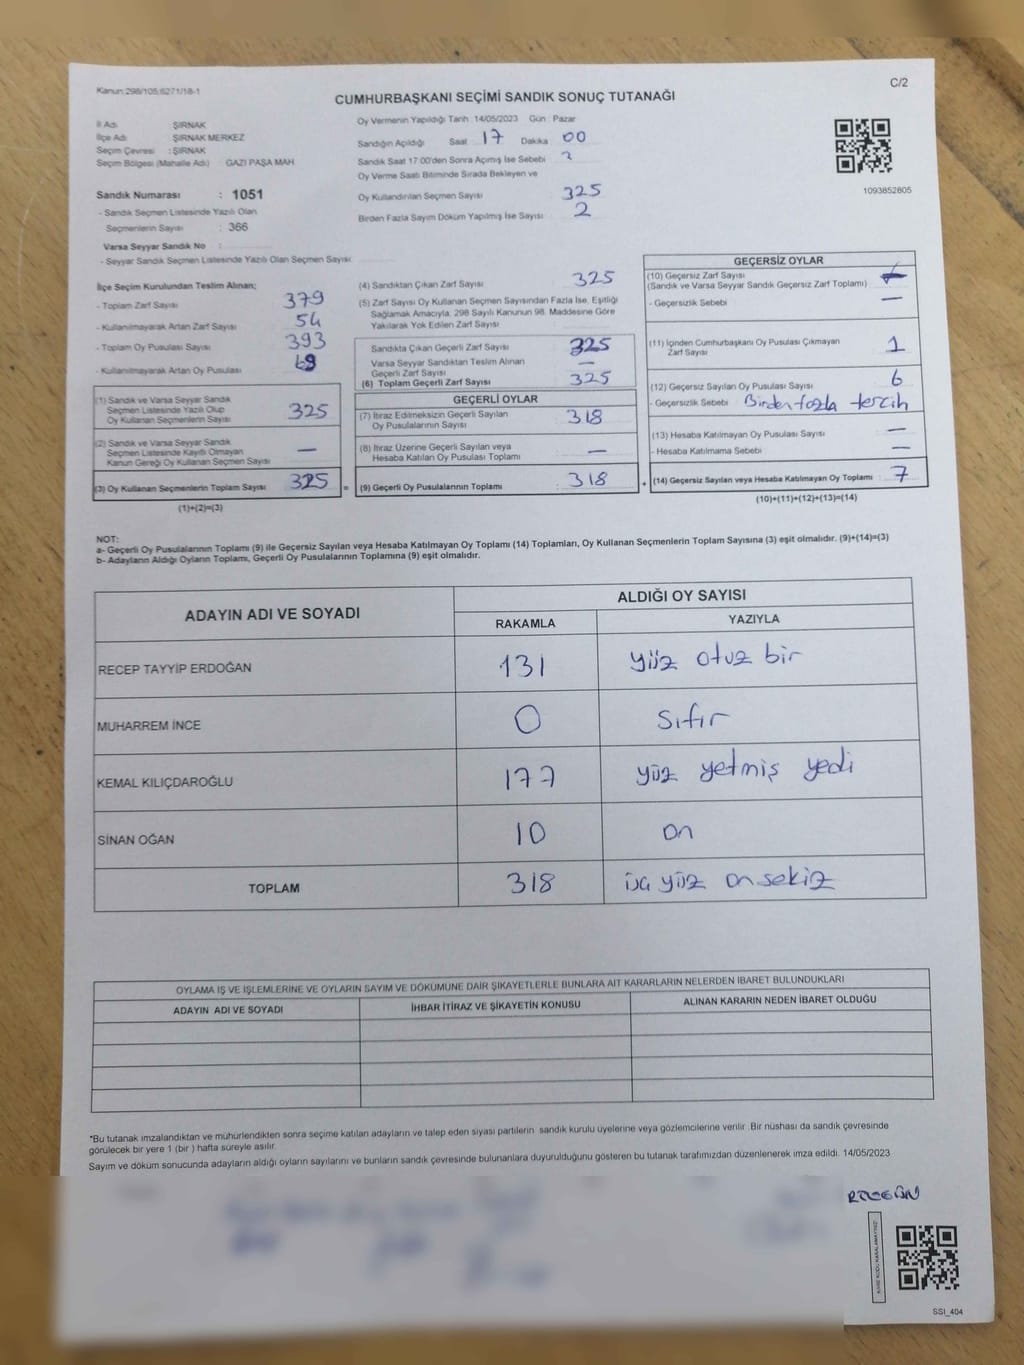 Kanun:298/105,6271/18-1
C/2
CUMHURBAŞKANI SEÇİMİ SANDIK SONUÇ TUTANAĞI
İl Adı ŞIRNAK
İlçe Adı ŞIRNAK MERKEZ
Seçim Çevresi : ŞIRNAK
Seçim Bölgesi (Mahalle Adı) GAZİ PAŞA MAH
Sandık Numarası : 1051
- Sandık Seçmen Listesinde Yazılı Olan
Seçmenlerin Sayısı : 366
Varsa Seyyar Sandık No :
- Seyyar Sandık Seçmen Listesinde Yazılı Olan Seçmen Sayısı:
Oy Vermenin Yapıldığı Tarih :14/05/2023 Gün : Pazar
Sandığın Açıldığı Saat 17 Dakika 00
Sandık Saat 17:00'den Sonra Açılmış İse Sebebi
Oy Verme Saati Bitiminde Sırada Bekleyen ve
Oy Kullandırılan Seçmen Sayısı 325
Birden Fazla Sayım Döküm Yapılmış İse Sayısı 2
1093852805
İlçe Seçim Kurulundan Teslim Alınan;
- Toplam Zarf Sayısı 379
- Kullanılmayarak Artan Zarf Sayısı 54
- Toplam Oy Pusulası Sayısı 393
- Kullanılmayarak Artan Oy Pusulası
(1) Sandık ve Varsa Seyyar Sandık
Seçmen Listesinde Yazılı Olup
Oy Kullanan Seçmenlerin Sayısı 325
(2) Sandık ve Varsa Seyyar Sandık
Seçmen Listesinde Kayıtlı Olmayan
Kanun Gereği Oy Kullanan Seçmen Sayısı —
(3) Oy Kullanan Seçmenlerin Toplam Sayısı 325 =
(1)+(2)=(3)
(4) Sandıktan Çıkan Zarf Sayısı 325
(5) Zarf Sayısı Oy Kullanan Seçmen Sayısından Fazla İse, Eşitliği
Sağlamak Amacıyla, 298 Sayılı Kanunun 98. Maddesine Göre
Yakılarak Yok Edilen Zarf Sayısı
Sandıkta Çıkan Geçerli Zarf Sayısı 325
Varsa Seyyar Sandıktan Teslim Alınan
Geçerli Zarf Sayısı —
(6) Toplam Geçerli Zarf Sayısı 325
GEÇERLİ OYLAR
(7) İtiraz Edilmeksizin Geçerli Sayılan
Oy Pusulalarının Sayısı 318
(8) İtiraz Üzerine Geçerli Sayılan veya
Hesaba Katılan Oy Pusulası Toplamı —
(9) Geçerli Oy Pusulalarının Toplamı : 318 +
GEÇERSİZ OYLAR
(10) Geçersiz Zarf Sayısı
(Sandık ve Varsa Seyyar Sandık Geçersiz Zarf Toplamı)
- Geçersizlik Sebebi —
(11) İçinden Cumhurbaşkanı Oy Pusulası Çıkmayan
Zarf Sayısı 1
(12) Geçersiz Sayılan Oy Pusulası Sayısı 6
- Geçersizlik Sebebi Birden fazla tercih
(13) Hesaba Katılmayan Oy Pusulası Sayısı —
- Hesaba Katılmama Sebebi —
(14) Geçersiz Sayılan veya Hesaba Katılmayan Oy Toplamı : 7
(10)+(11)+(12)+(13)=(14)
NOT:
a- Geçerli Oy Pusulalarının Toplamı (9) ile Geçersiz Sayılan veya Hesaba Katılmayan Oy Toplamı (14) Toplamları, Oy Kullanan Seçmenlerin Toplam Sayısına (3) eşit olmalıdır. (9)+(14)=(3)
b- Adayların Aldığı Oyların Toplamı, Geçerli Oy Pusulalarının Toplamına (9) eşit olmalıdır.
ADAYIN ADI VE SOYADI
ALDIĞI OY SAYISI
RAKAMLA YAZIYLA
RECEP TAYYİP ERDOĞAN 131 yüz otuz bir
MUHARREM İNCE 0 sıfır
KEMAL KILIÇDAROĞLU 177 yüz yetmiş yedi
SİNAN OĞAN 10 on
TOPLAM 318 üç yüz on sekiz
OYLAMA İŞ VE İŞLEMLERİNE VE OYLARIN SAYIM VE DÖKÜMÜNE DAİR ŞİKAYETLERLE BUNLARA AİT KARARLARIN NELERDEN İBARET BULUNDUKLARI
ADAYIN ADI VE SOYADI İHBAR İTİRAZ VE ŞİKAYETİN KONUSU ALINAN KARARIN NEDEN İBARET OLDUĞU
*Bu tutanak imzalandıktan ve mühürlendikten sonra seçime katılan adayların ve talep eden siyasi partilerin sandık kurulu üyelerine veya gözlemcilerine verilir. Bir nüshası da sandık çevresinde
görülecek bir yere 1 (bir) hafta süreyle asılır.
Sayım ve döküm sonucunda adayların aldığı oyların sayılarını ve bunların sandık çevresinde bulunanlara duyurulduğunu gösteren bu tutanak tarafımızdan düzenlenerek imza edildi. 14/05/2023
KARE KODU KARALAMAYINIZ!
SSİ_404